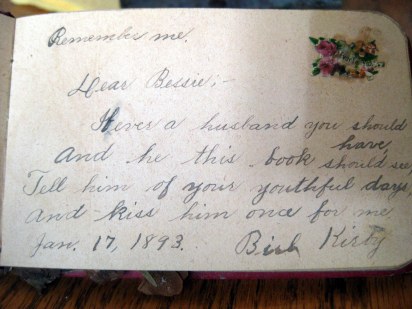 Remember me.
Dear Bessie;-
If ever a husband you should
have,
And he this book should see,
Tell him of your youthful days
And kiss him once for me
Jan. 17, 1893. Kirty